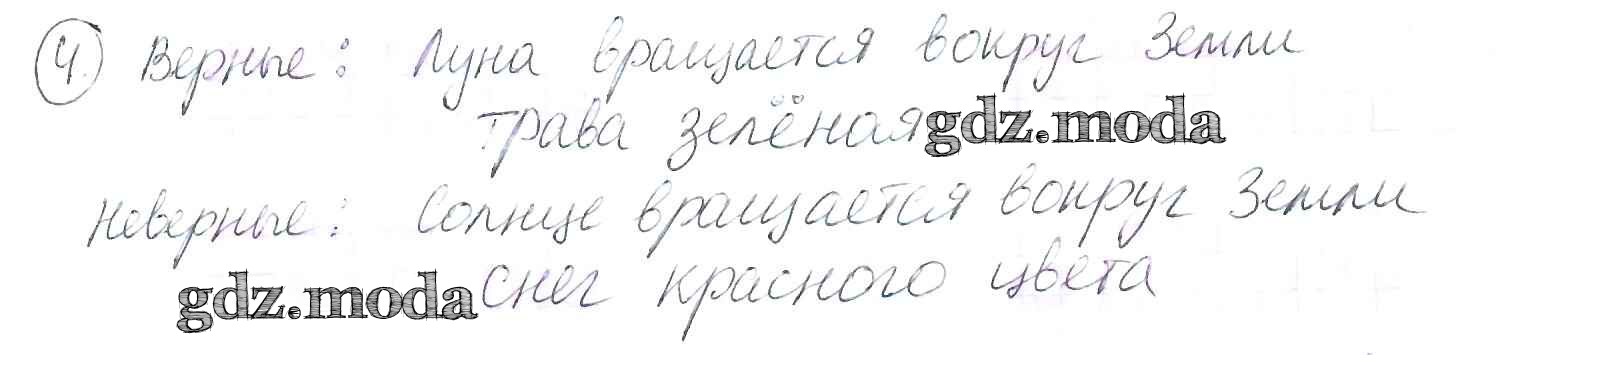 4. Верные: Луна вращается вокруг Земли
трава зелёная gdz.moda
Неверные: Солнце вращается вокруг Земли
gdz.moda снег красного цвета